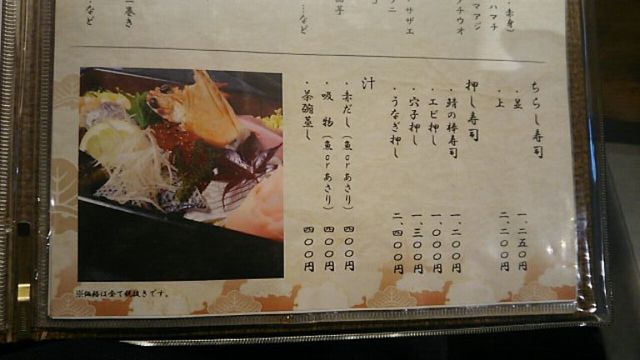 ・赤身)
ハマチ
マアジ
タチウオ
サザエ
…など
一巻き
…など
ちらし寿司
・並 一、二五〇円
・上 二、二〇〇円
押し寿司
・鯖の棒寿司 一、二〇〇円
・エビ押し 一、〇〇〇円
・穴子押し 一、三〇〇円
・うなぎ押し 二、四〇〇円
汁
・赤だし(魚orあさり) 四〇〇円
・吸 物(魚orあさり) 四〇〇円
・茶碗蒸し 四〇〇円
※価格は全て税抜きです。